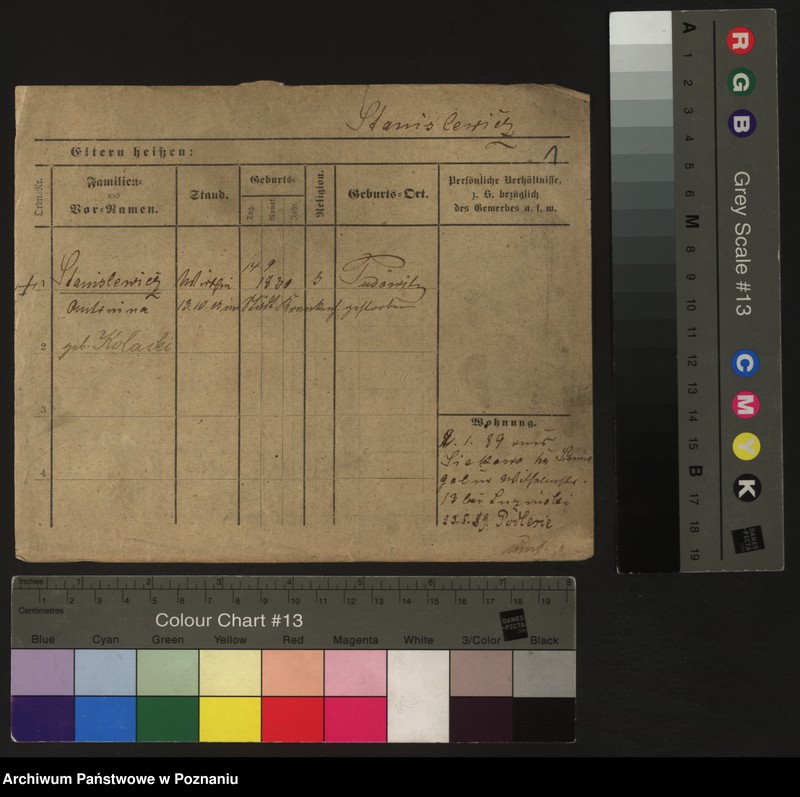 Stanislewicz
1
Eltern heißen:
Ordn.-Nr.
Familien-
und
Vor-Namen.
Stand.
Geburts-
Tag.
Monat.
Jahr.
Religion.
Geburts-Ort.
Persönliche Verhältnisse,
z. B. bezüglich
des Gewerbes u. s. w.
14 9
1 Stanislewicz Wirthin 1830
Antonina 13.10. im Städt. Krankenh. gestorben
2 geb. Kolacki
3
4
Wohnung.
2. 1. 89 aus
13 bei
23.5.89.
R
G
B
Grey Scale #13
C
M
Y
K
A
1
2
3
4
5
6
M
8
9
10
11
12
13
14
15
B
17
18
19
DANES
PICTA
Inches 1 2 3 4 5 6 7 8
Centimetres 1 2 3 4 5 6 7 8 9 10 11 12 13 14 15 16 17 18 19
Colour Chart #13
DANES
PICTA
Blue Cyan Green Yellow Red Magenta White 3/Color Black
Archiwum Państwowe w Poznaniu